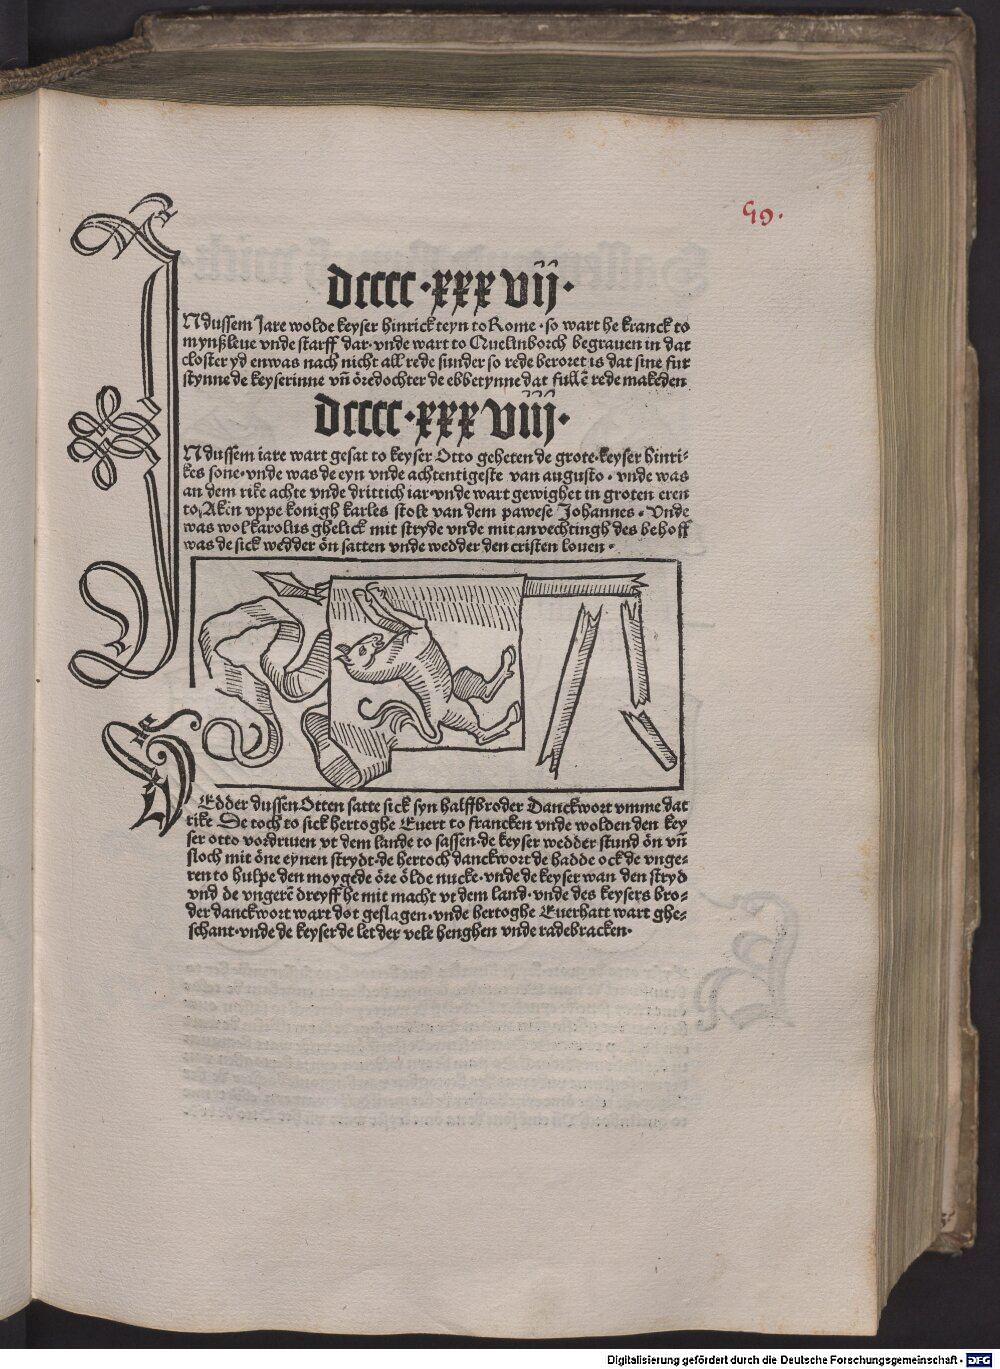 59.
dcccc·xxxvij·
INdussem Jare wolde keyser hinrick teyn to Rome·so wart he kranck to
mynßleue vnde starff dar·vnde wart to Quelinborch begrauen in dat
closter yd enwas nach nicht all rede sunder so rede beroret is dat sine fur
stynne de keyserinne vñ öredochter de ebbetynne dat fullē rede makeden
dcccc·xxxviij·
INdussem iare wart gesat to keyser Otto geheten de grote·keyser hinri-
kes sone·vnde was de eyn vnde achtentigeste van augusto·vnde was
an dem rike achte vnde drittich iar·vnde wart gewighet in groten eren
to Akin vppe konigh karles stole van dem pawese Johannes·Vnde
was wol karolus ghelick mit stryde vnde mit anvechtingh des behoff
was de sick wedder ön satten vnde wedder den cristen louen·
WEdder dussen Otten satte sick syn halffbroder Danckwort vmme dat
rike De toch to sick hertoghe Euert to francken vnde wolden den key
ser otto vordriuen vt dem lande to sassen·de keyser wedder stund ön vñ
sloch mit öne eynen strydt·de hertoch danckwort de hadde ock de vnge-
ren to hulpe den moygede öre ölde nucke·vnde de keyser wan den stryd
vnd de vngerē dreyff he mit macht vt dem land·vnde des keysers bro-
der danckwort wart dot geslagen·vnde hertoghe Euerhatt wart ghe-
schant·vnde de keyser de let der vele henghen vnde radebracken·
Digitalisierung gefördert durch die Deutsche Forschungsgemeinschaft - DFG